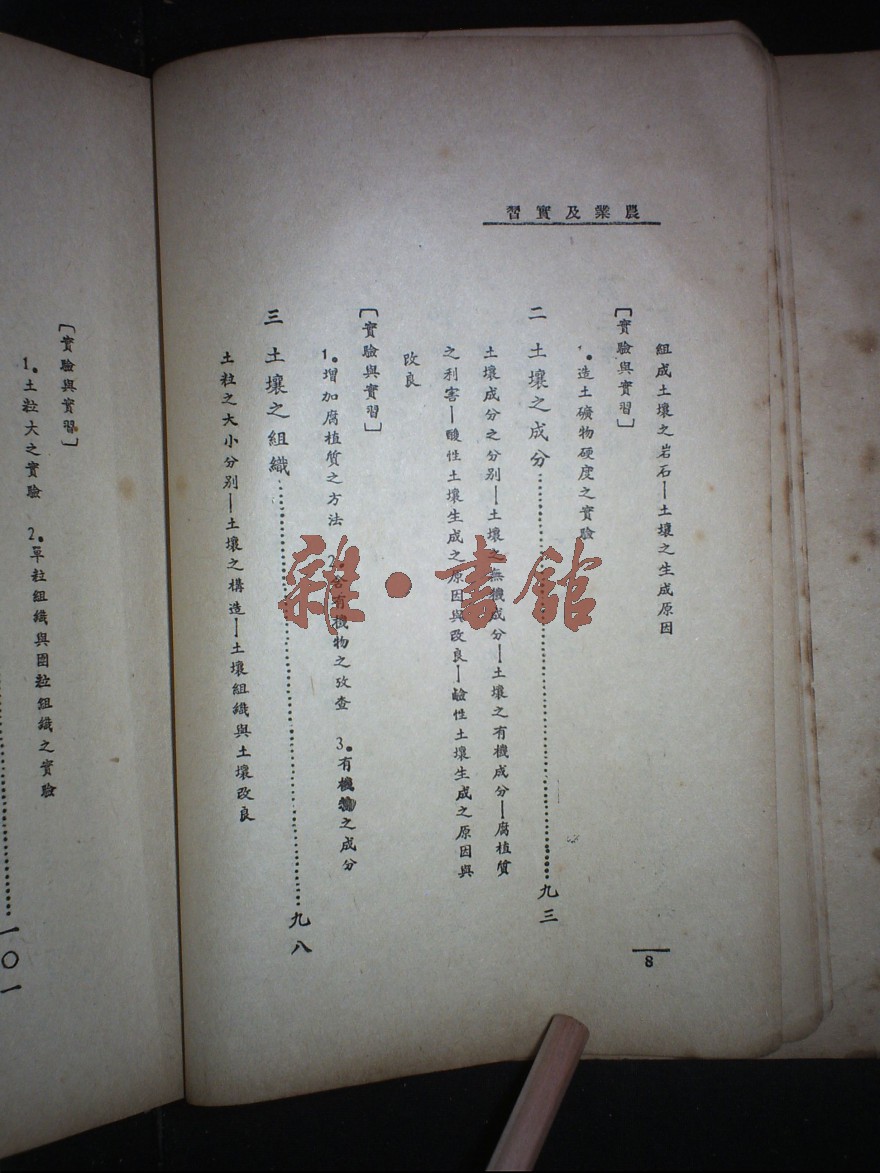 農業及實習
組成土壤之岩石—土壤之生成原因
〔實驗與實習〕
1.造土礦物硬度之實驗
二 土壤之成分……九三
土壤成分之分別—土壤之無機成分—土壤之有機成分—腐植質
之利害—酸性土壤生成之原因與改良—鹼性土壤生成之原因與
改良
〔實驗與實習〕
1.增加腐植質之方法 2.含有機物之攷查 3.有機物之成分
三 土壤之組織……九八
土粒之大小分別—土壤之構造—土壤組織與土壤改良
8
〔實驗與實習〕
1.土粒大之實驗 2.單粒組織與團粒組織之實驗
……一〇一
雜·書館